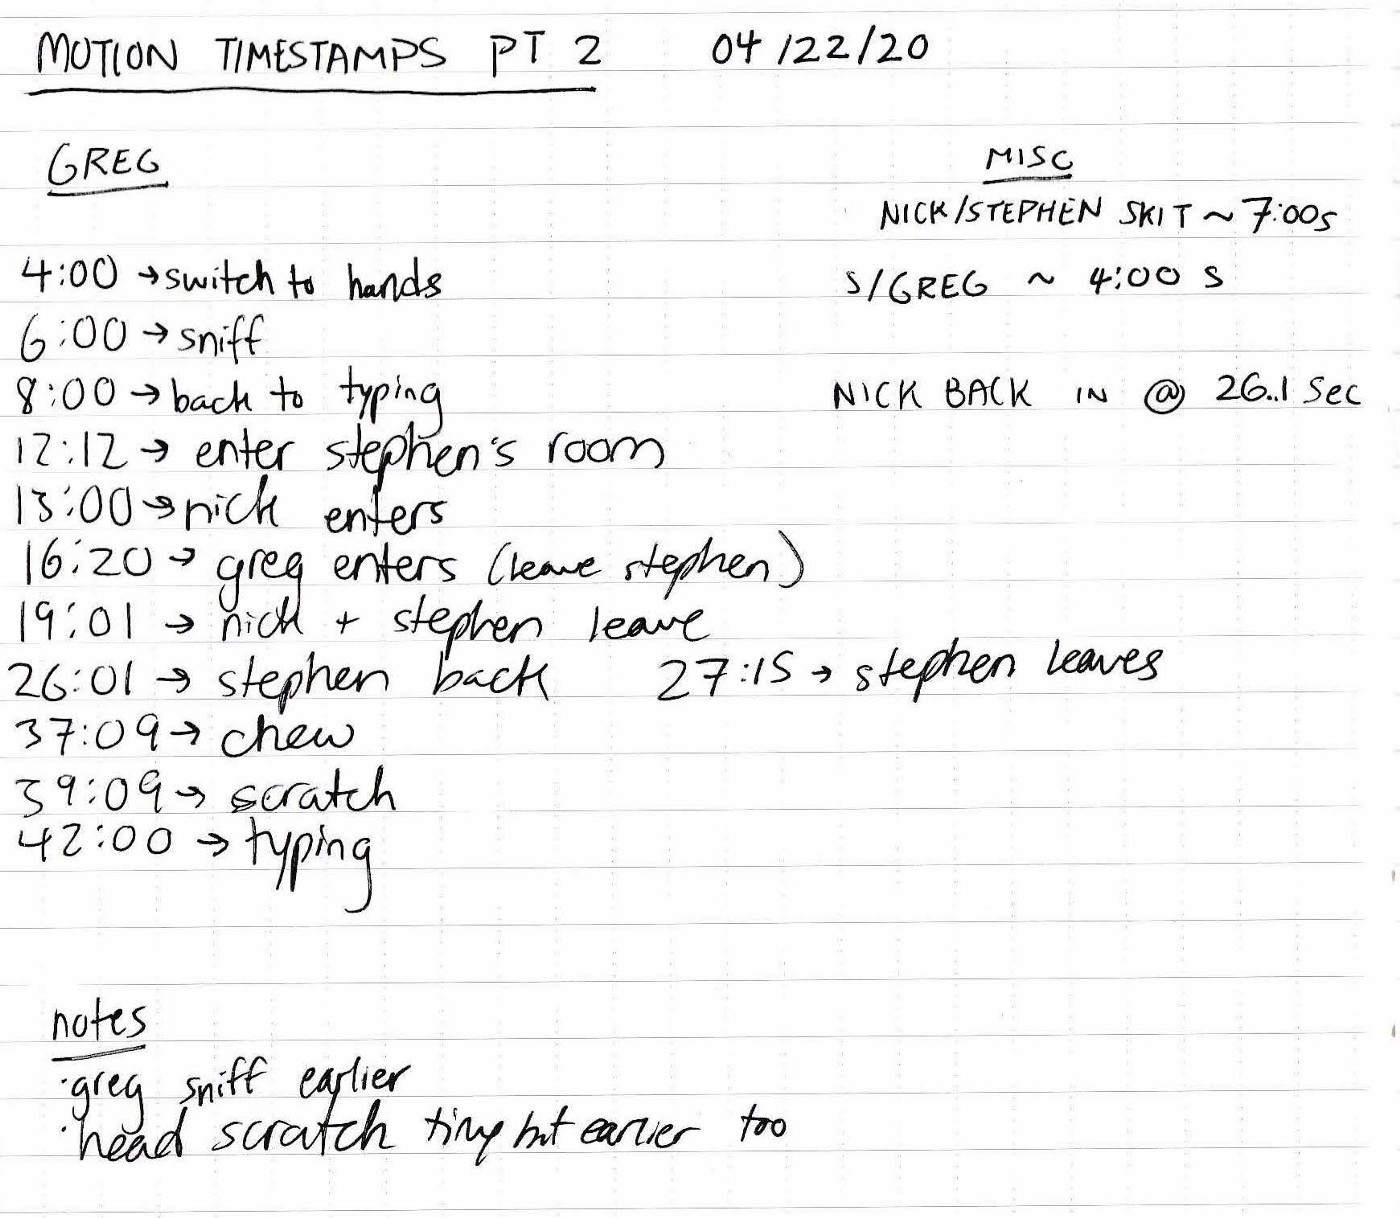 MOTION TIMESTAMPS PT 2 04/22/20
GREG
4:00 → switch to hands
6:00 → sniff
8:00 → back to typing
12:12 → enter stephen's room
13:00 → nick enters
16:20 → greg enters (leave stephen)
19:01 → nick + stephen leave
26:01 → stephen back 27:15 → stephen leaves
37:09 → chew
39:09 → scratch
42:00 → typing
MISC
NICK/STEPHEN SKIT ~ 7:00s
S/GREG ~ 4:00 S
NICK BACK IN @ 26.1 Sec
notes
·greg sniff earlier
·head scratch tiny bit earlier too